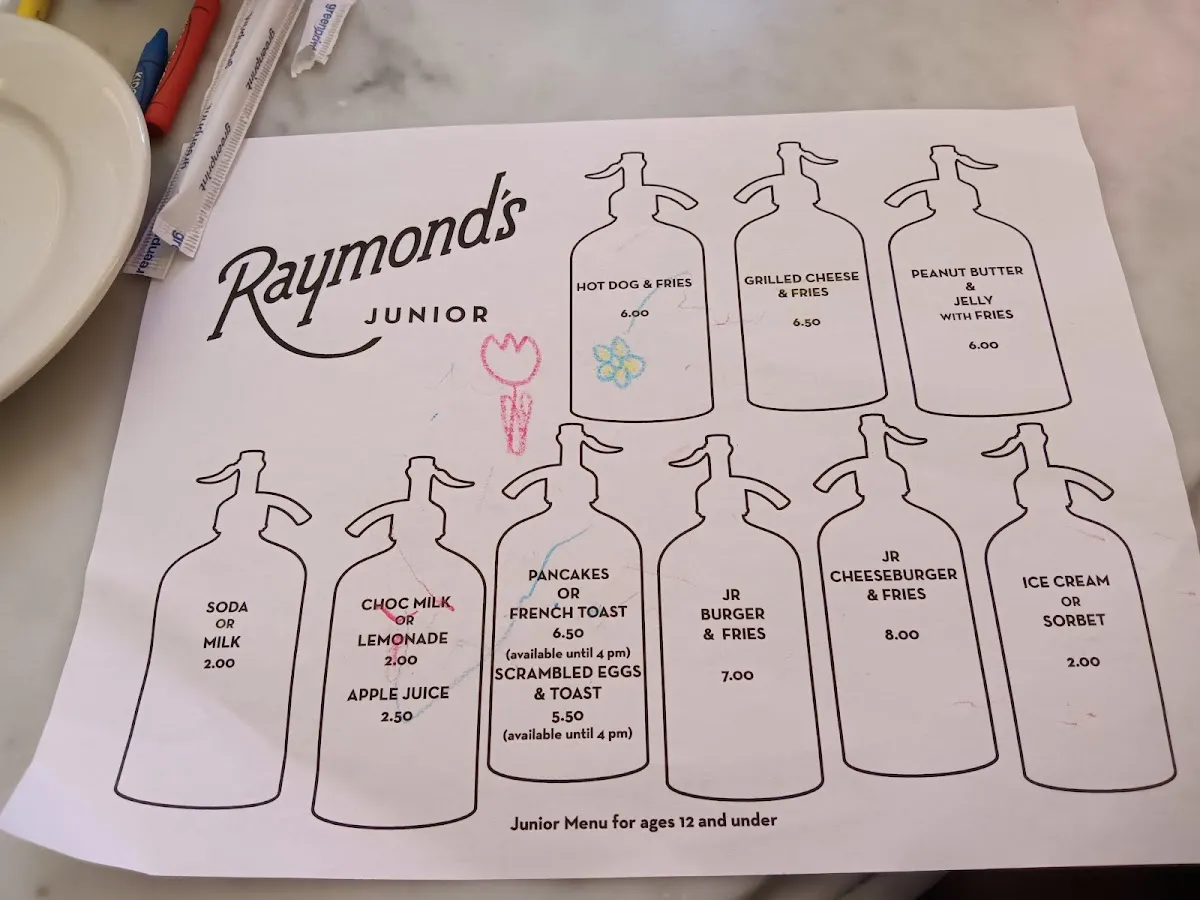 Raymond's
JUNIOR
HOT DOG & FRIES
6.00
GRILLED CHEESE
& FRIES
6.50
PEANUT BUTTER
&
JELLY
WITH FRIES
6.00
SODA
OR
MILK
2.00
CHOC MILK
OR
LEMONADE
2.00
APPLE JUICE
2.50
PANCAKES
OR
FRENCH TOAST
6.50
(available until 4 pm)
SCRAMBLED EGGS
& TOAST
5.50
(available until 4 pm)
JR
BURGER
& FRIES
7.00
JR
CHEESEBURGER
& FRIES
8.00
ICE CREAM
OR
SORBET
2.00
Junior Menu for ages 12 and under
greenprint
greenprint